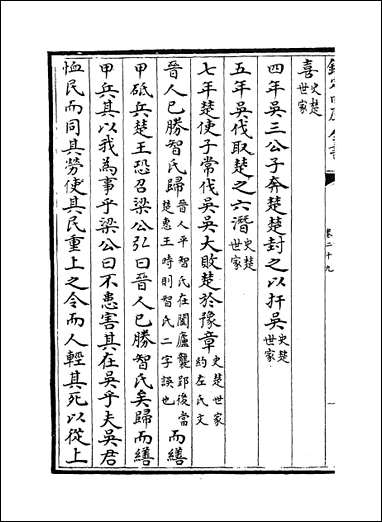 欽定四庫全書
卷二十九
喜史楚世家
四年吳三公子奔楚楚封之以扞吳史楚世家
五年吳伐取楚之六潛史楚世家
七年楚使子常伐吳吳大敗楚於豫章史楚世家約左氏文
晉人已勝智氏歸晉人平智氏在闔廬襲郢後當楚惠王時則智氏二字誤也而繕
甲砥兵楚王恐召梁公弘曰晉人已勝智氏矣歸而繕
甲兵其以我為事乎梁公曰不患害其在吳乎夫吳君
恤民而同其勞使其民重上之令而人輕其死以從上